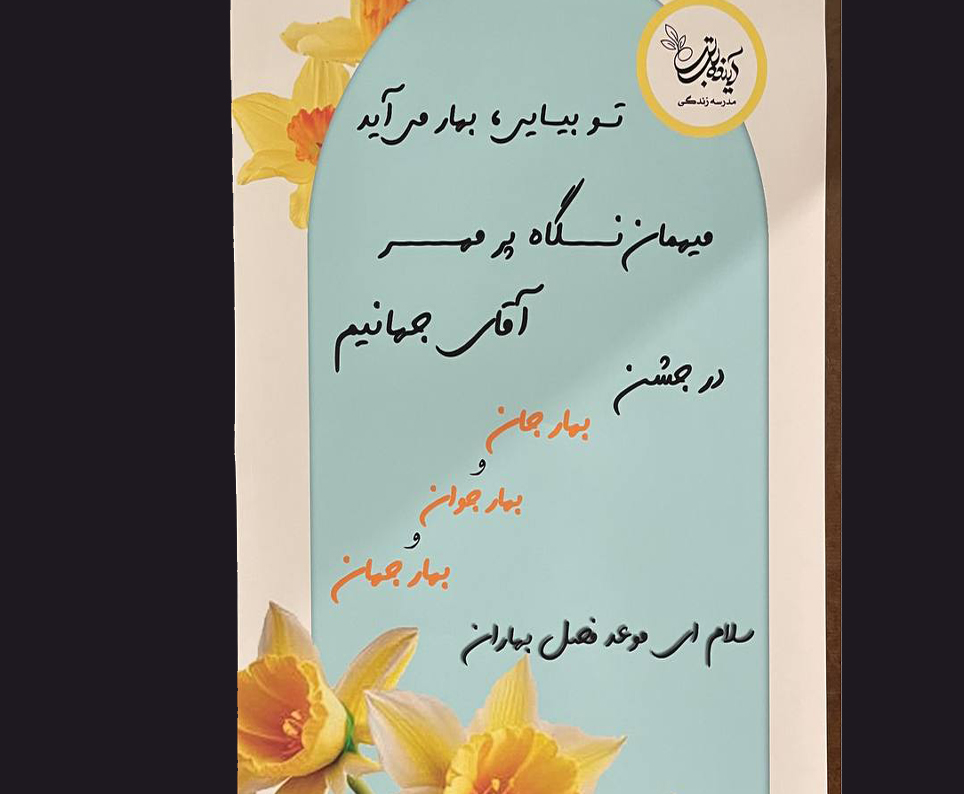 مدرسه زندگی
تو بیایی، بهار می‌آید
میهمان نگاه پر مهر
آقای جهانیم
در جشن
بهار جان
و
بهار جوان
و
بهار جهان
سلام ای موعد فصل بهاران